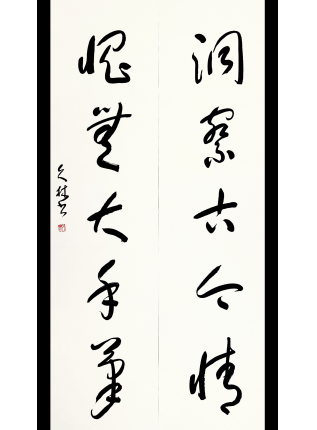 洞察古今情
愧無大手筆